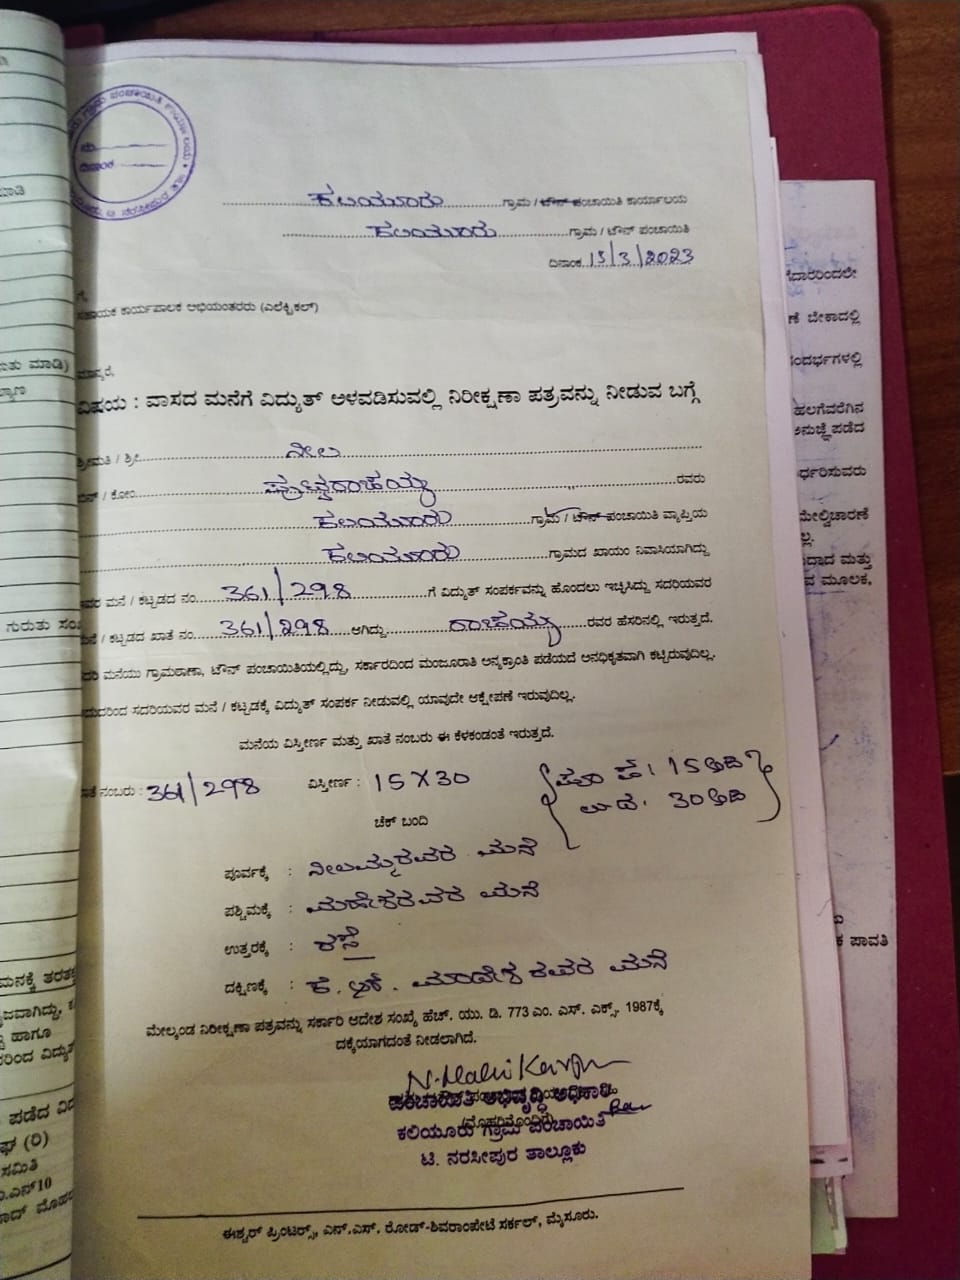 ನಂ.
ದಿನಾಂಕ
ಕಲಿಯೂರು ಗ್ರಾಮ / ಟೌನ್ ಪಂಚಾಯಿತಿ ಕಾರ್ಯಾಲಯ
ಕಲಿಯೂರು ಗ್ರಾಮ / ಟೌನ್ ಪಂಚಾಯಿತಿ
ದಿನಾಂಕ 15/3/2023
ಗೆ,
ಸಹಾಯಕ ಕಾರ್ಯಪಾಲಕ ಅಭಿಯಂತರರು (ಎಲೆಕ್ಟ್ರಿಕಲ್)
ಮಾನ್ಯರೆ,
ವಿಷಯ : ವಾಸದ ಮನೆಗೆ ವಿದ್ಯುತ್ ಅಳವಡಿಸುವಲ್ಲಿ ನಿರೀಕ್ಷಣಾ ಪತ್ರವನ್ನು ನೀಡುವ ಬಗ್ಗೆ
ಶ್ರೀಮತಿ / ಶ್ರೀ ನೀಲ
ಕೋಂ ರಾಚಯ್ಯ ರವರು
ಕಲಿಯೂರು ಗ್ರಾಮ / ಟೌನ್ ಪಂಚಾಯಿತಿ ವ್ಯಾಪ್ತಿಯ
ಕಲಿಯೂರು ಗ್ರಾಮದ ಖಾಯಂ ನಿವಾಸಿಯಾಗಿದ್ದು
ಮನೆ / ಕಟ್ಟಡದ ನಂ. 361/298 ಗೆ ವಿದ್ಯುತ್ ಸಂಪರ್ಕವನ್ನು ಹೊಂದಲು ಇಚ್ಛಿಸಿದ್ದು ಸದರಿಯವರ
ಮನೆ / ಕಟ್ಟಡದ ಖಾತೆ ನಂ. 361/298 ಆಗಿದ್ದು ರಾಚಯ್ಯ ರವರ ಹೆಸರಿನಲ್ಲಿ ಇರುತ್ತದೆ.
ಮನೆಯು ಗ್ರಾಮಠಾಣಾ, ಟೌನ್ ಪಂಚಾಯಿತಿಯಲ್ಲಿದ್ದು, ಸರ್ಕಾರದಿಂದ ಮಂಜೂರಾತಿ ಅನ್ಯಕ್ರಾಂತಿ ಪಡೆಯದೆ ಅನಧಿಕೃತವಾಗಿ ಕಟ್ಟಿರುವುದಿಲ್ಲ.
ಸದರಿಯವರ ಮನೆ / ಕಟ್ಟಡಕ್ಕೆ ವಿದ್ಯುತ್ ಸಂಪರ್ಕ ನೀಡುವಲ್ಲಿ ಯಾವುದೇ ಆಕ್ಷೇಪಣೆ ಇರುವುದಿಲ್ಲ.
ಮನೆಯ ವಿಸ್ತೀರ್ಣ ಮತ್ತು ಖಾತೆ ನಂಬರು ಈ ಕೆಳಕಂಡಂತೆ ಇರುತ್ತದೆ.
ಖಾತೆ ನಂಬರು : 361/298 ವಿಸ್ತೀರ್ಣ : 15 X 30
ಪೂ ಪ : 15 ಅಡಿ
ಉ ದ : 30 ಅಡಿ
ಚೆಕ್ ಬಂದಿ
ಪೂರ್ವಕ್ಕೆ : ನೀಲಮ್ಮರವರ ಮನೆ
ಪಶ್ಚಿಮಕ್ಕೆ : ಮಹೇಶರವರ ಮನೆ
ಉತ್ತರಕ್ಕೆ : ರಸ್ತೆ
ದಕ್ಷಿಣಕ್ಕೆ : ಕೆ.ಆರ್. ಮಾದೇಶರವರ ಮನೆ
ಮೇಲ್ಕಂಡ ನಿರೀಕ್ಷಣಾ ಪತ್ರವನ್ನು ಸರ್ಕಾರಿ ಆದೇಶ ಸಂಖ್ಯೆ ಹೆಚ್. ಯು. ಡಿ. 773 ಎಂ. ಎಸ್. ಎಕ್ಸ್. 1987ಕ್ಕೆ
ದಕ್ಕೆಯಾಗದಂತೆ ನೀಡಲಾಗಿದೆ.
ಪಂಚಾಯಿತಿ ಅಭಿವೃದ್ಧಿ ಅಧಿಕಾರಿ
ಕಲಿಯೂರು ಗ್ರಾಮ ಪಂಚಾಯಿತಿ
ಟಿ. ನರಸೀಪುರ ತಾಲ್ಲೂಕು
ಈಶ್ವರ್ ಪ್ರಿಂಟರ್ಸ್, ಎನ್.ಎಸ್. ರೋಡ್-ಶಿವರಾಂಪೇಟೆ ಸರ್ಕಲ್, ಮೈಸೂರು.